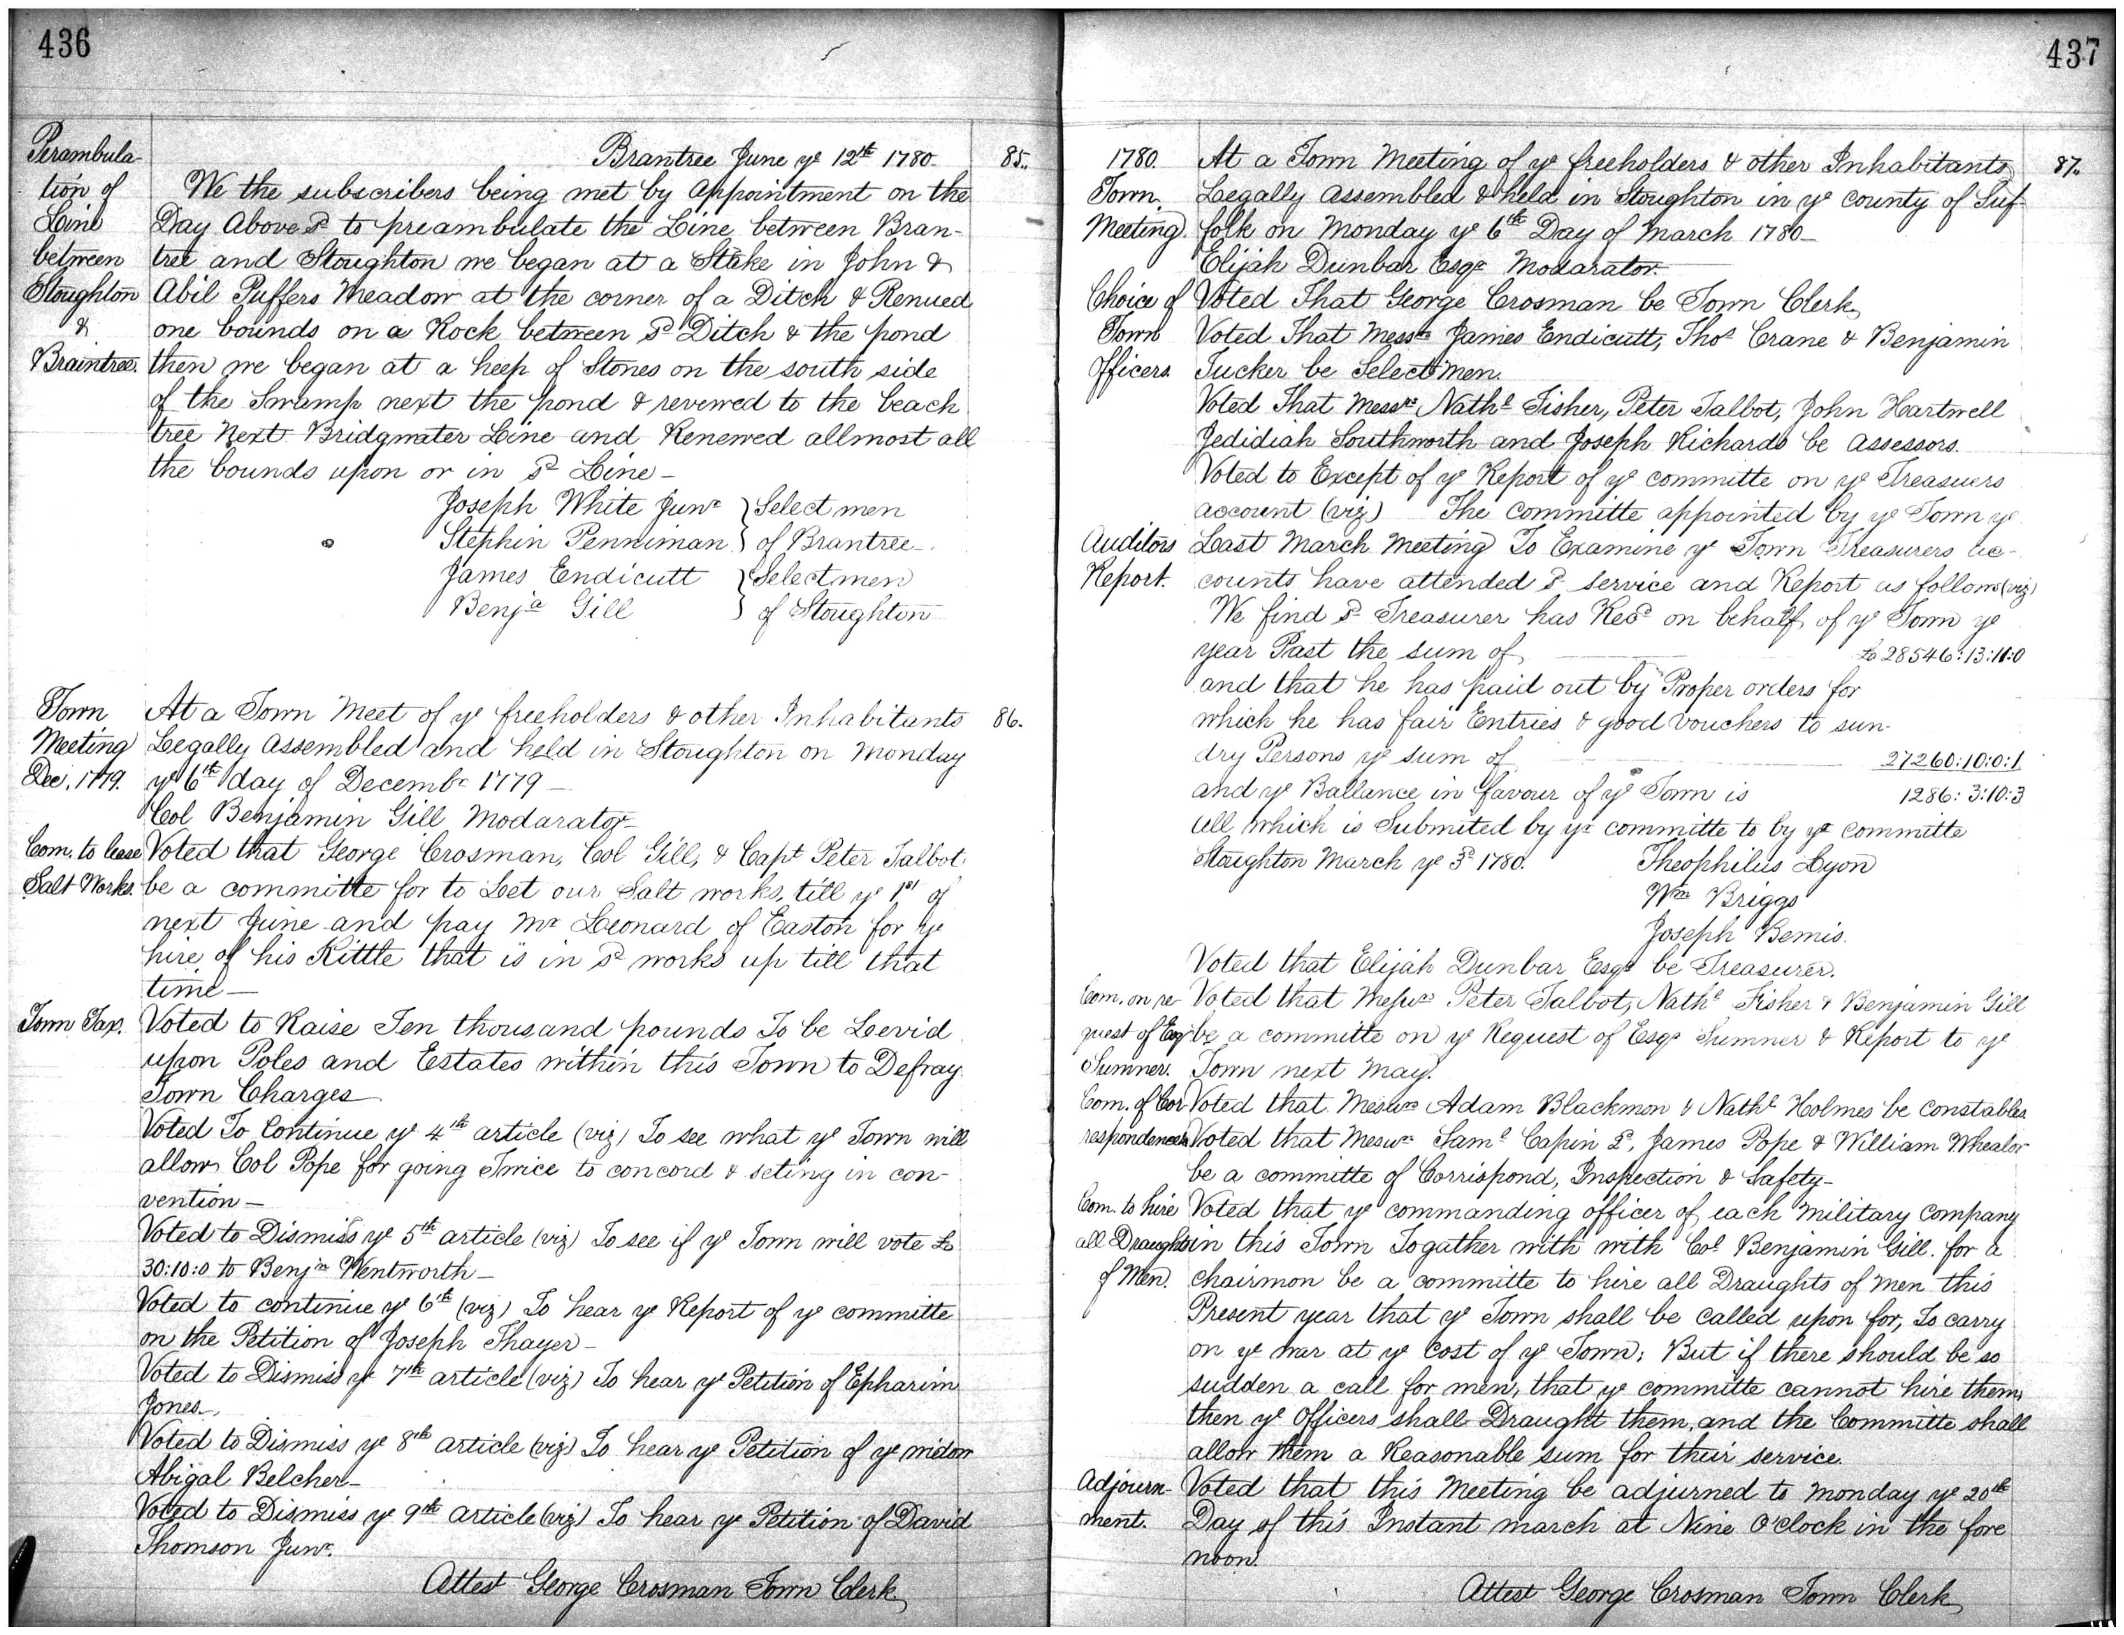 436
Perambula-
tion of
Line
between
Stoughton
&
Braintree.
Brantree June ye 12th 1780
85.
We the subscribers being met by Appointment on the
Day Above sd to preambulate the Line between Bran-
tree and Stoughton we began at a Stake in John &
Abil Puffers Meadow at the corner of a Ditch & Renued
one bounds on a Rock between sd Ditch & the pond
then we began at a heep of Stones on the south side
of the Swamp next the pond & revewed to the beach
tree Next Bridgwater Line and Renewed allmost all
the bounds upon or in sd Line-
Joseph White Junr } Select men
Stephin Penniman } of Brantree-
James Endicutt } Selectmen
Benja Gill } of Stoughton
Town
Meeting
Dec. 1779.
At a Town Meet of ye freeholders & other Inhabitants
86.
Legally Assembled and held in Stoughton on Monday
ye 6th day of Decembr 1779-
Col Benjamin Gill Modarator-
Com. to lease
Salt Works.
Voted that George Crosman, Col Gill, & Capt Peter Talbot
be a committe for to Let our Salt works, till ye 1st of
next June and pay Mr Leonard of Easton for ye
hire of his Kittle that is in sd works up till that
time-
Town Tax.
Voted to Raise Ten thousand pounds To be Levid
upon Poles and Estates within this Town to Defray
Town Charges
Voted To Continue ye 4th article (viz) To see what ye Town will
allow Col Pope for going Twice to concord & seting in con-
vention-
Voted to Dismiss ye 5th article (viz) To see if ye Town will vote £
30:10:0 to Benjn Wentworth-
Voted to continue ye 6th (viz) To hear ye Report of ye committe
on the Petition of Joseph Thayer-
Voted to Dismiss ye 7th article (viz) To hear ye Petition of Epharim
Jones-
Voted to Dismiss ye 8th article (viz) To hear ye Petition of ye widow
Abigal Belcher-
Voted to Dismiss ye 9th article (viz) To hear ye Petition of David
Thomson Junr.
Attest George Crosman Town Clerk
437
1780.
Town
Meeting.
At a Town Meeting of ye freeholders & other Inhabitants
87.
Legally Assembled & held in Stoughton in ye county of Suf-
folk on Monday ye 6th Day of March 1780-
Elijah Dunbar Esqr Modarator.
Choice of
Town
Officers.
Voted That George Crosman be Town Clerk
Voted That Messrs James Endicutt, Thos Crane & Benjamin
Tucker be Select men.
Voted That Messrs Nathl Fisher, Peter Talbot, John Hartwell
Jedidiah Southworth and Joseph Richards be Assessors.
Voted to Except of ye Report of ye committe on ye Treasuers
account (viz) The committe appointed by ye Town ye
Auditors
Report.
Last March Meeting To Examine ye Town Treasurers ac-
counts have attended sd service and Report as follows (viz)
We find sd Treasurer has Recd on behalf of ye Town ye
year Past the sum of £28546:13:11:0
and that he has paid out by Proper orders for
which he has fair Entries & good vouchers to sun-
dry Persons ye sum of 27260:10:0:1
and ye Ballance in favour of ye Town is 1286:3:10:3
all which is Submited by yr committe to by yr committe
Stoughton March ye 3d 1780. Theophilus Lyon
Wm Briggs
Joseph Bemis.
Voted that Elijah Dunbar Esqr be Treasurer.
Com. on re-
quest of Esqr
Sumner.
Voted that Messrs Peter Talbot, Nathl Fisher & Benjamin Gill
be a committe on ye Request of Esqr Sumner & Report to ye
Town next May.
Com. of Cor
respondence.
Voted that Messrs Adam Blackmon & Nathl Holmes be constables
Voted that Messrs Saml Capin 2d, James Pope & William Whealor
be a committe of Corrispond, Inspection & Safety-
Com. to hire
all Draughts
of Men.
Voted that ye commanding officer of each Military Company
in this Town Togather with with Col Benjamin Gill for a
chairmon be a committe to hire all Draughts of men this
Present year that ye Town shall be called upon for, To carry
on ye war at ye Cost of ye Town; But if there should be so
sudden a call for men, that ye committe cannot hire them,
then ye Officers shall Draught them, and the Committe shall
allow them a Reasonable sum for their service.
Adjourn-
ment.
Voted that this Meeting be adjurned to Monday ye 20th
Day of this Instant march at Nine O'Clock in the fore
noon.
Attest George Crosman Town Clerk